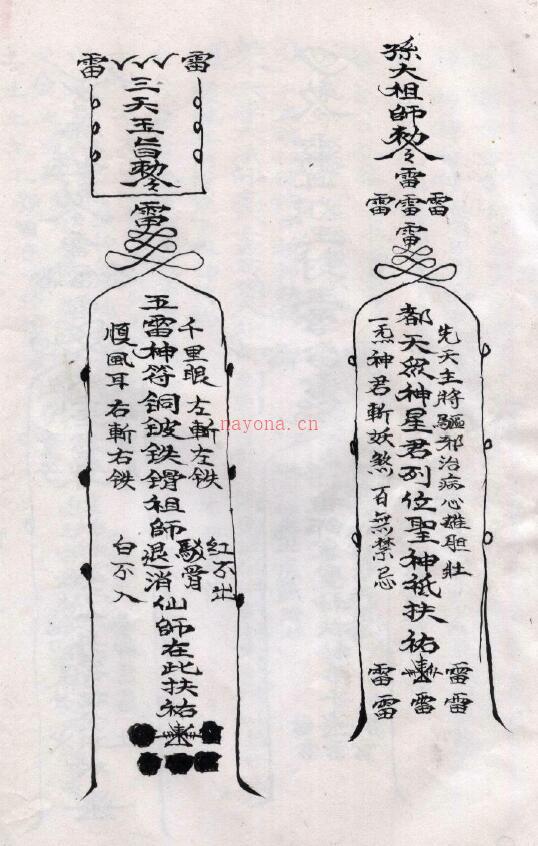 孫大祖師勅令
雷
雷雷雷
雷
先天主將驅邪治病心雄胆壯
都天眾神星君列位聖神祇扶祐
一炁神君斬妖煞百無禁忌
雷 雷
雷雷雷
雷 雷
三天玉旨勅令
雷
千里眼左斬左鉄
紅不出
五雷神符铜皮鉄骨祖師退消仙師在此扶祐
順風耳右斬右鉄
白不入
nayona.cn